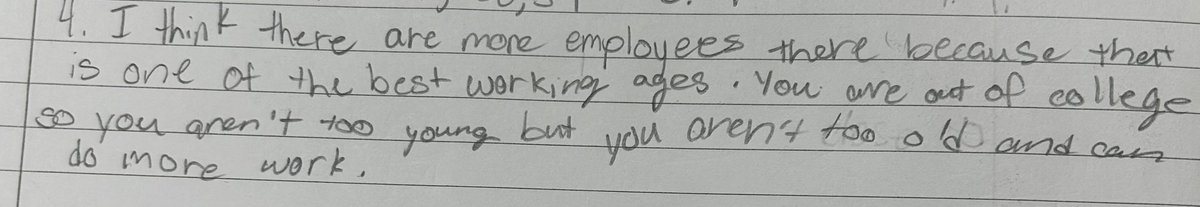 4. I think there are more employees there because that
is one of the best working ages. You are out of college
so you aren't too young but you aren't too old and can
do more work.